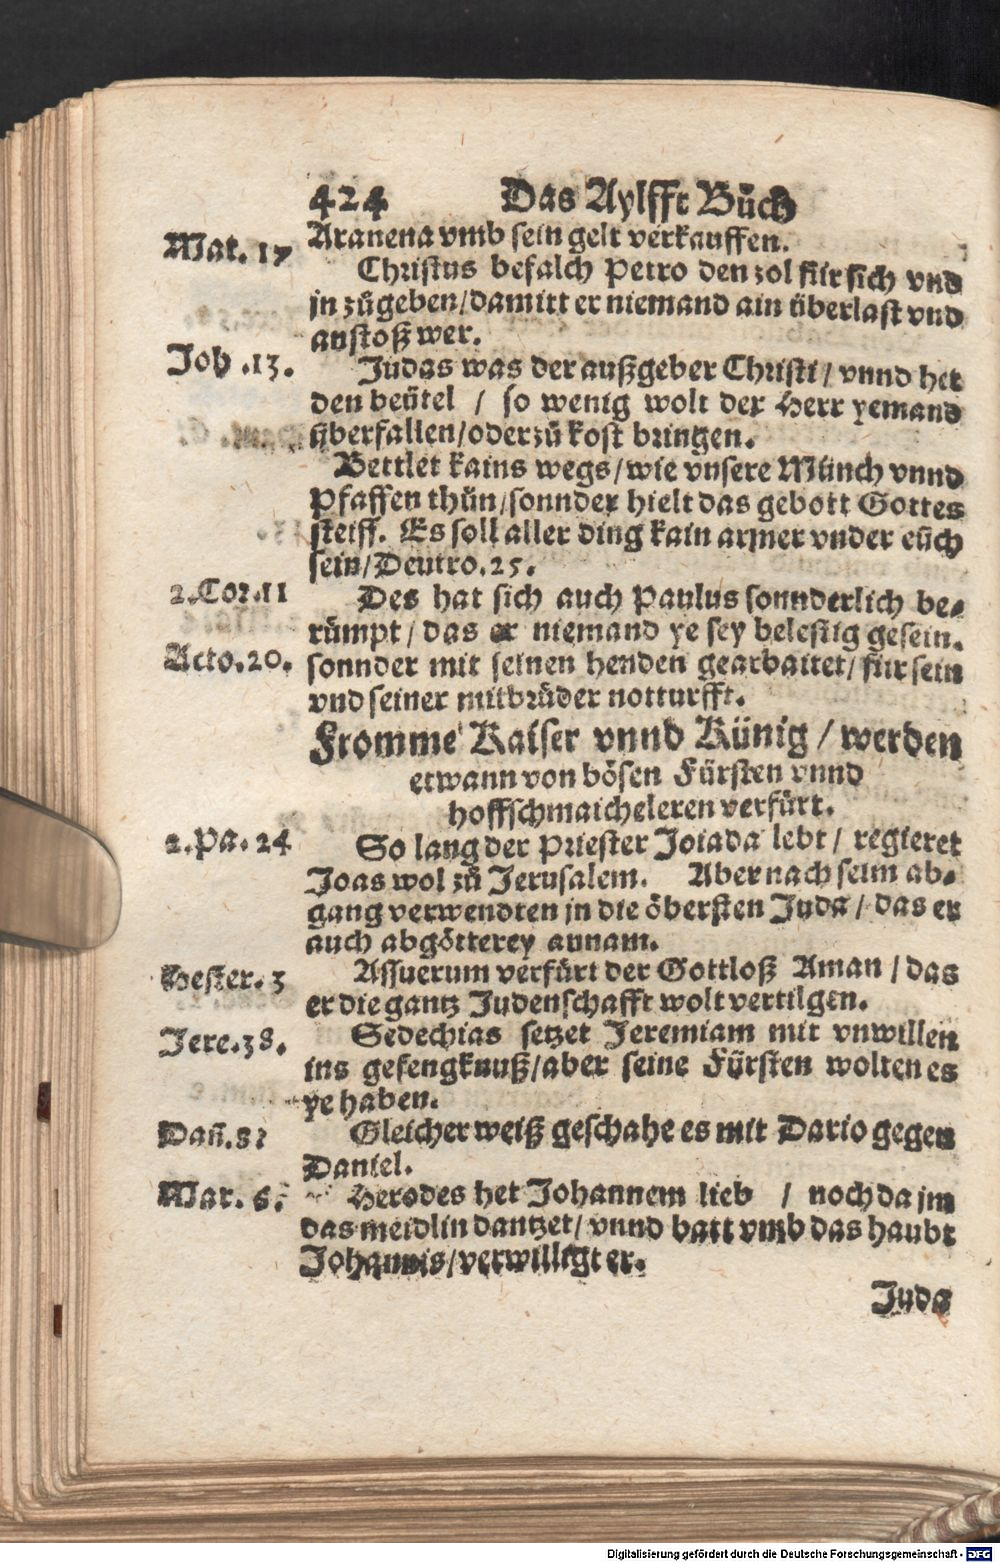 424 Das Aylfft Bůch
Aranena vmb sein gelt verkauffen.
Mat. 17
Christus befalch Petro den zol für sich vnd
jn zůgeben/damitt er niemand ain überlast vnd
anstoß wer.
Joh .13.
Judas was der außgeber Christi / vnnd het
den beütel / so wenig wolt der Herr yemand
überfallen/oder zů kost bringen.
Bettlet kains wegs/wie vnsere Münch vnnd
Pfaffen thůn/sonnder hielt das gebott Gottes
steiff. Es soll aller ding kain armer vnder eüch
sein/Deutro.25.
2.Cor.11
Des hat sich auch Paulus sonnderlich be⸗
rümpt / das er niemand ye sey belestig gesein.
Acto.20.
sonnder mit seinen henden gearbaitet/ für sein
vnd seiner mitbrůder notturfft.
Fromme Kaiser vnnd Künig / werden
etwann von bösen Fürsten vnnd
hoffschmaicheleren verfürt.
2.Pa. 24
So lang der Priester Joiada lebt / regieret
Joas wol zů Jerusalem. Aber nach seim ab⸗
gang verwendten jn die öbersten Juda / das er
auch abgötterey annam.
Hester. 3
Assuerum verfürt der Gottloß Aman / das
er die gantz Judenschafft wolt vertilgen.
Jere.38.
Sedechias setzet Jeremiam mit vnwillen
ins gefengknuß/aber seine Fürsten wolten es
ye haben.
Dañ.8?
Gleicher weiß geschahe es mit Dario gegen
Daniel.
Mar. 6.
Herodes het Johannem lieb / noch da jm
das meidlin dantzet/ vnnd batt vmb das haubt
Johannis/verwilligt er.
Juda
Digitalisierung gefördert durch die Deutsche Forschungsgemeinschaft - DFG